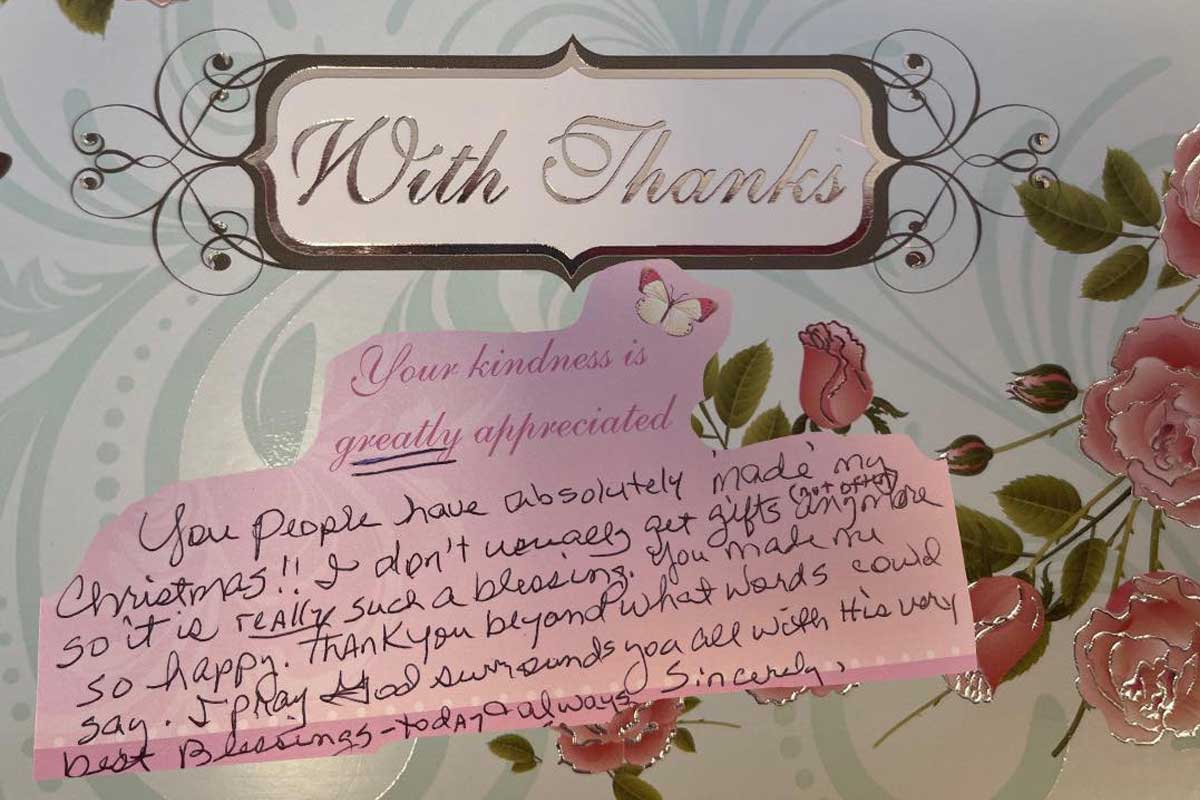 With Thanks
Your kindness is
greatly appreciated
You people have absolutely 'made' my
Christmas!! I don't usually get gifts (not often) anymore
so it is really such a blessing. You made me
so happy. Thank you beyond what words could
say. I pray God surrounds you all with His very
best Blessings - today & always. Sincerely,